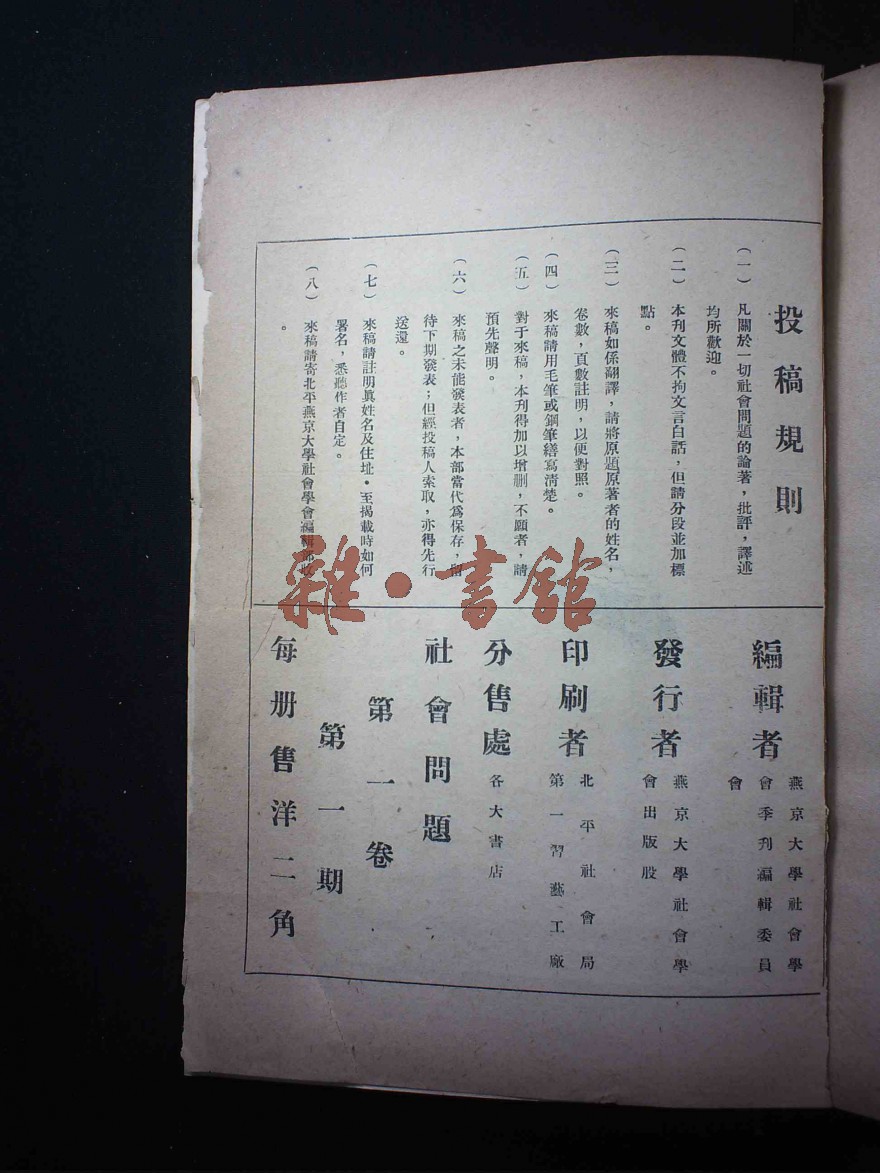 投稿規則
(一) 凡關於一切社會問題的論著，批評，譯述
均所歡迎。
(二) 本刊文體不拘文言白話，但請分段並加標
點。
(三) 來稿如係翻譯，請將原題原著者的姓名，
卷數，頁數註明，以便對照。
(四) 來稿請用毛筆或鋼筆繕寫清楚。
(五) 對于來稿，本刊得加以增删，不願者，請
預先聲明。
(六) 來稿之未能發表者，本部當代爲保存，留
待下期發表；但經投稿人索取，亦得先行
送還。
(七) 來稿請註明眞姓名及住址・至揭載時如何
署名，悉聽作者自定。
(八) 來稿請寄北平燕京大學社會學會編輯部收
。
編輯者
燕京大學社會學
會季刋編輯委員
會
發行者
燕京大學社會學
會出版股
印刷者
北平社會局
第一習藝工廠
分售處
各大書店
社會問題
第一卷
第一期
每册售洋二角
雜・書館